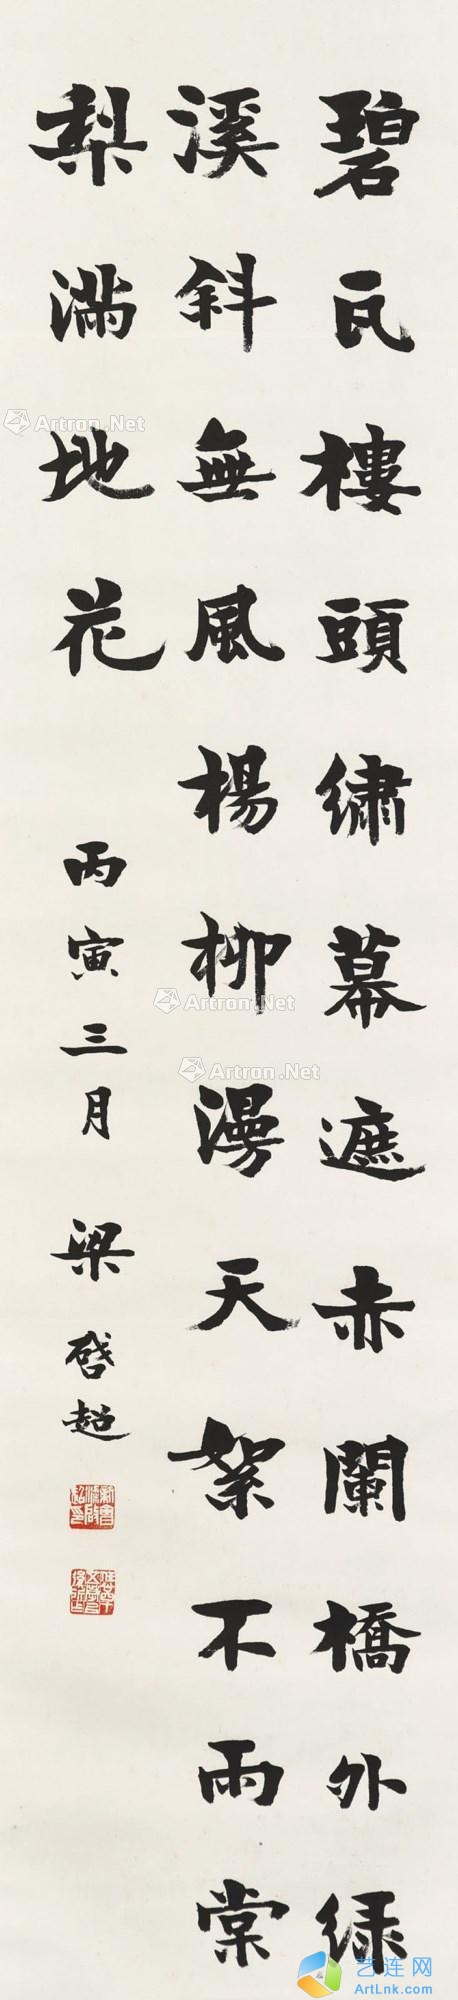 碧瓦樓頭繡幕遮赤闌橋外綠
溪斜無風楊柳漫天絮不雨棠
梨滿地花
丙寅三月 梁啓超
Artron.Net
Artron.Net
Artron.Net
艺连网
ArtLnk.com